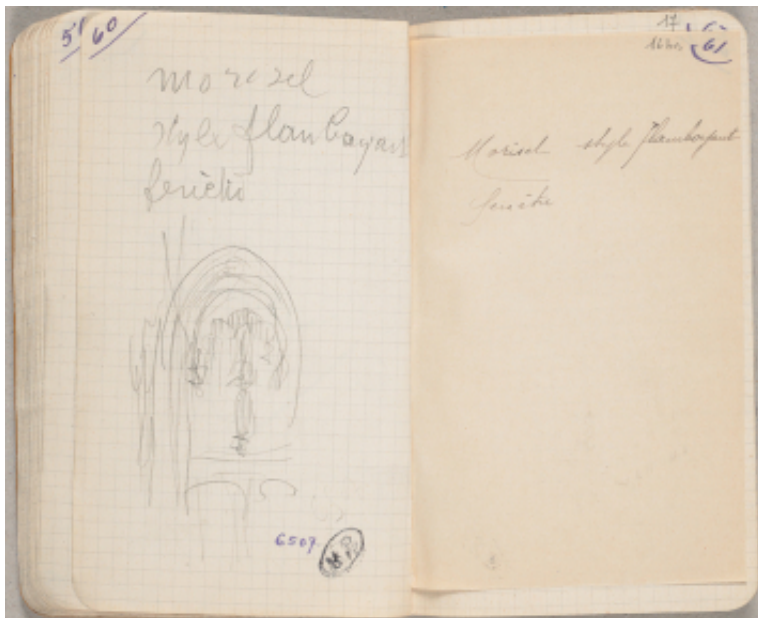 51 60
morisel
style flanbayant
fenêtre
6507
17
16 bis
61
Morisel style flamboyant
fenêtre